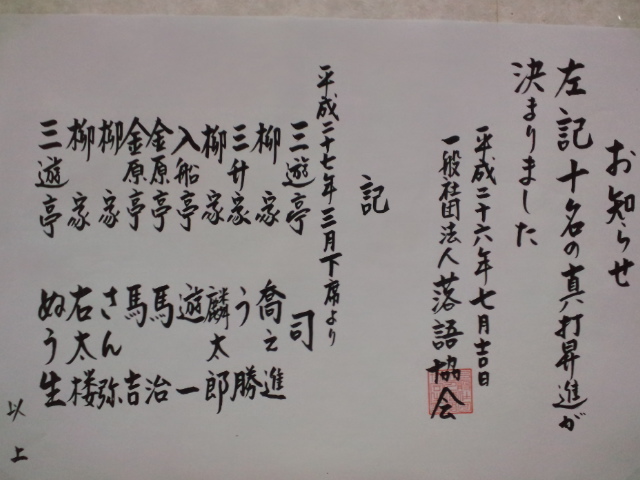 お知らせ
左記十名の真打昇進が
決まりました
平成二十六年七月吉日
一般社団法人落語協会
記
平成二十七年三月下席より
三遊亭 司
柳家 喬之進
三升家 う勝
柳家 麟太郎
入船亭 遊一
金原亭 馬治
金原亭 馬吉
柳家 さん弥
柳家 右太楼
三遊亭 ぬう生
以上